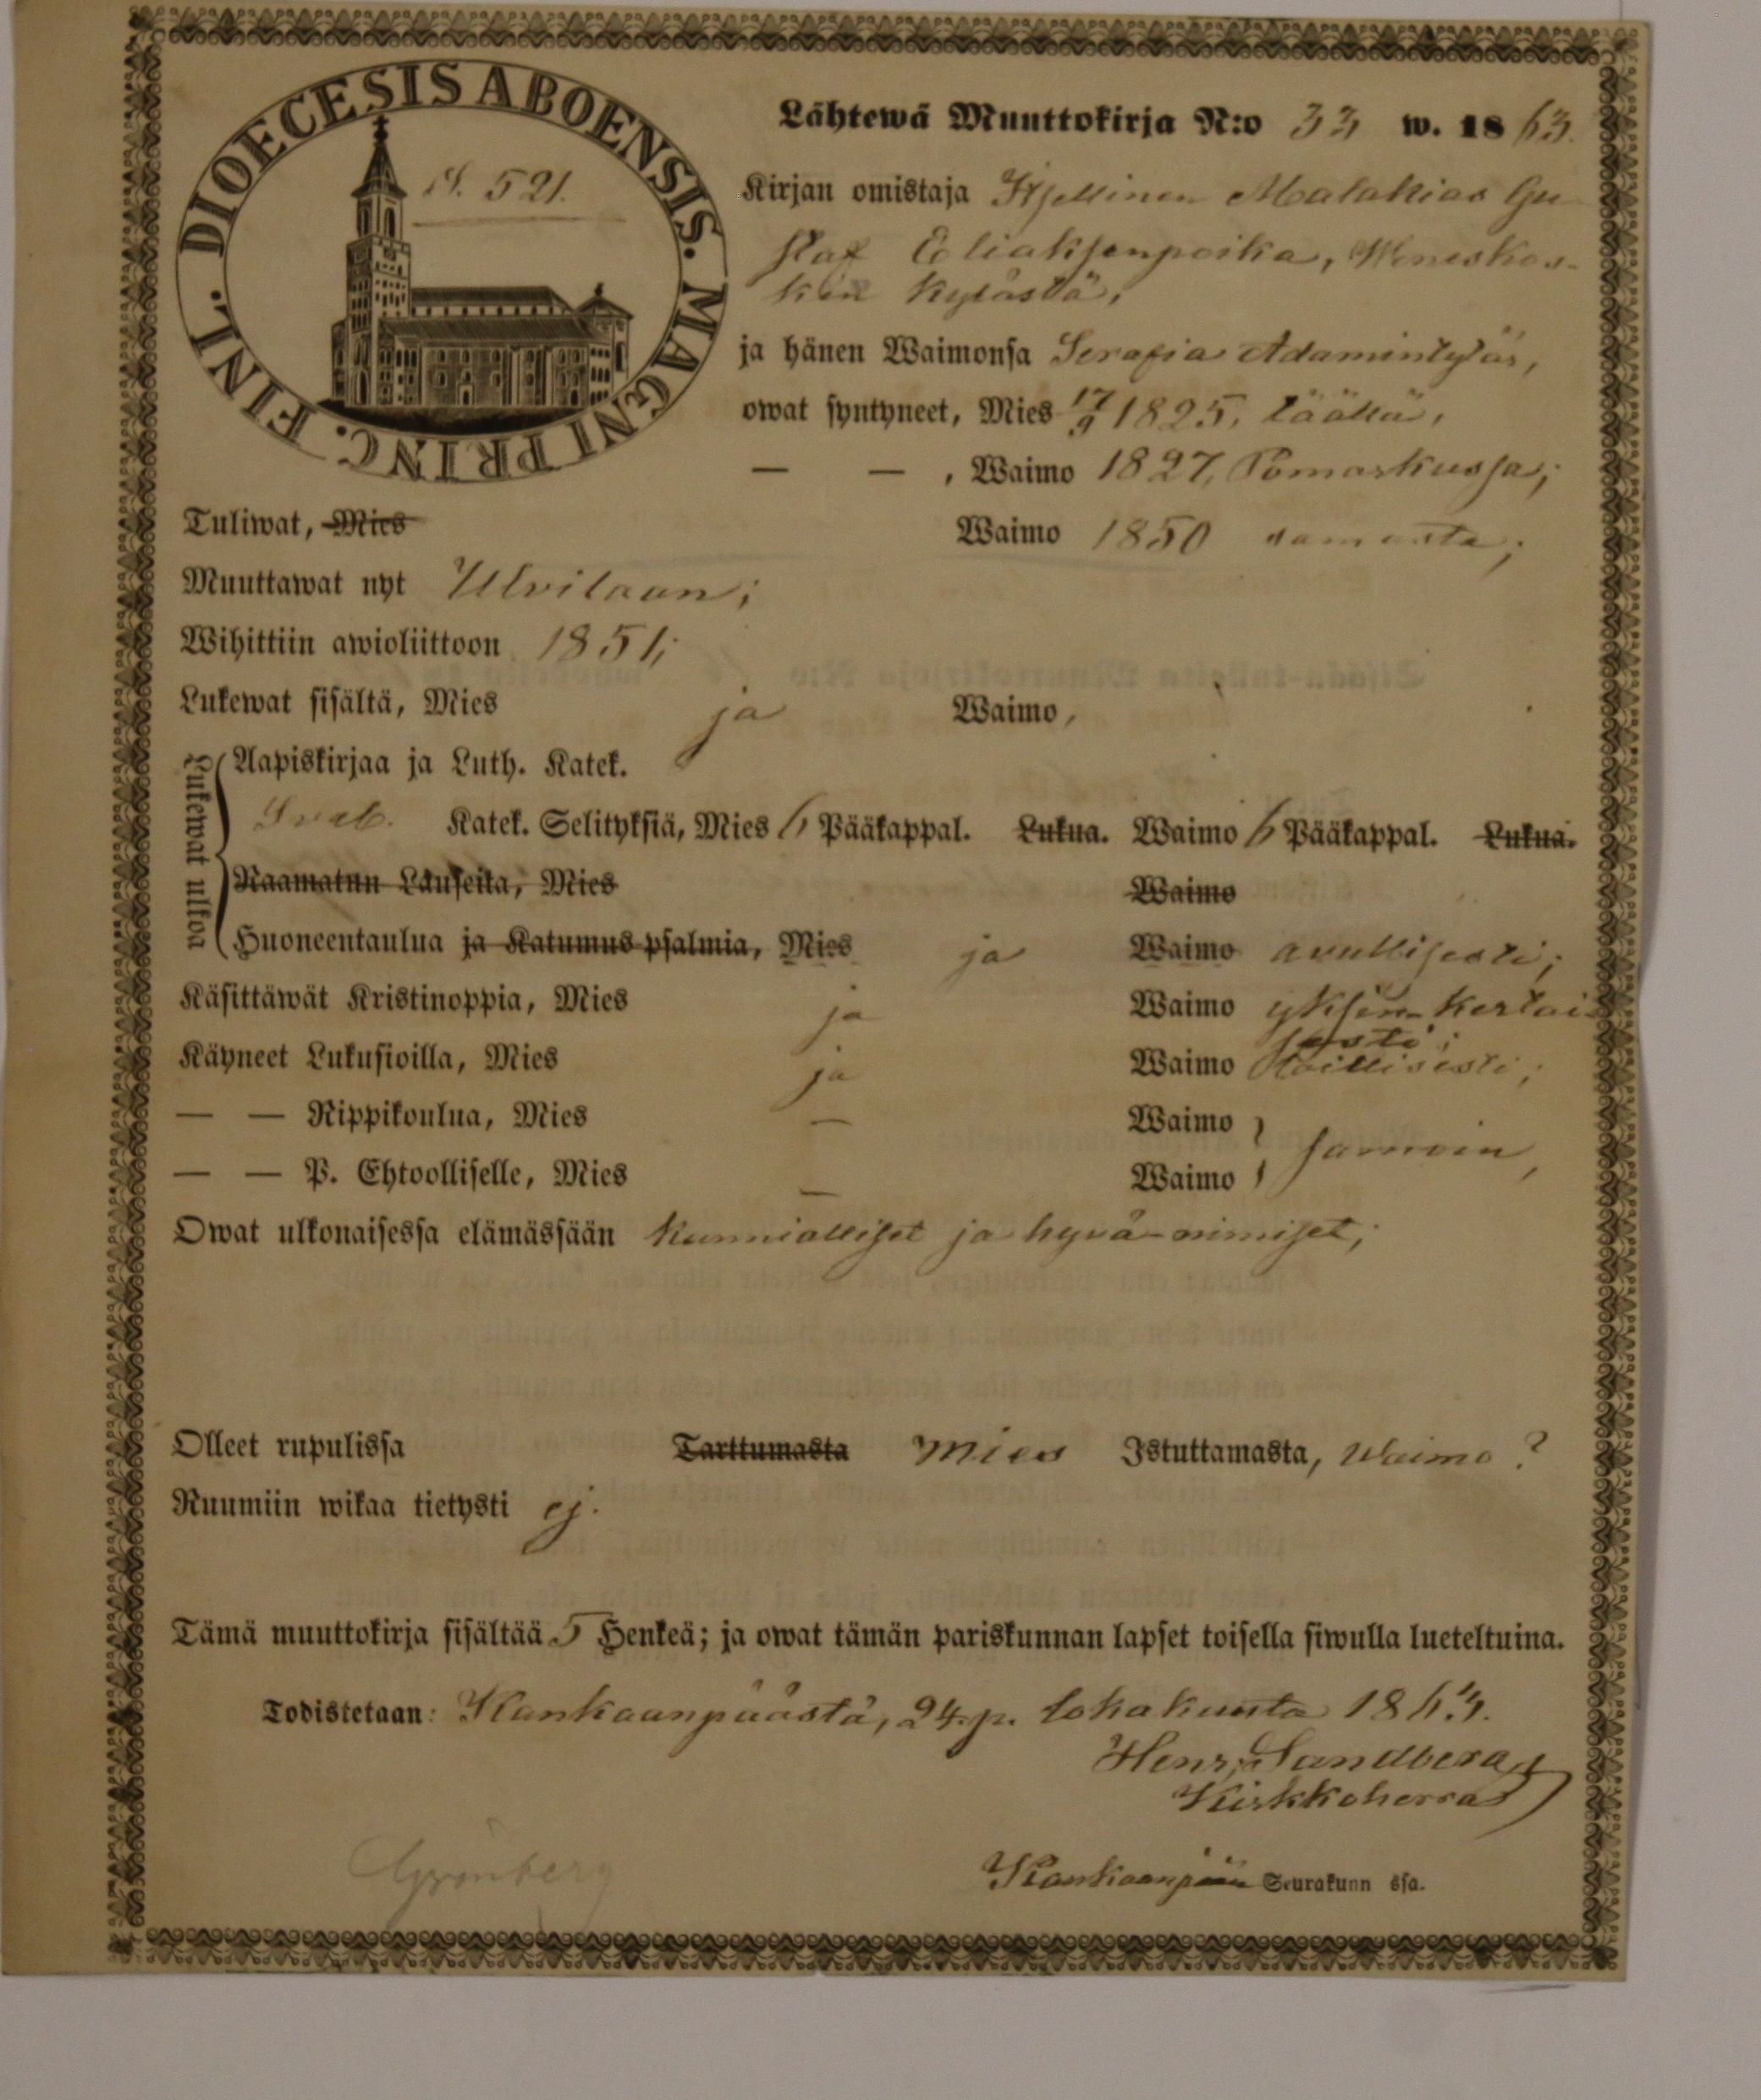 DIOECESIS ABOENSIS. MAGNI PRINC. FINL.
S. 521.
Lähtewä Muuttokirja N:o 33 w. 1863.
Kirjan omistaja Kjellinen Malakias Gu-
staf Eliaksenpoika, Weneskos-
ken kylästä,
ja hänen Waimonsa Serafia Adamintytär,
owat syntyneet, Mies 17/9 1825, täällä,
— — , Waimo 1827, Pomarkussa;
Tuliwat, Mies Waimo 1850 samasta;
Muuttawat nyt Ulvilaan;
Wihittiin awioliittoon 1851;
Lukewat sisältä, Mies ja Waimo,
Lukewat ulkoa
Aapiskirjaa ja Luth. Katek.
Sveb. Katek. Selityksiä, Mies 6 Pääkappal. Lukua. Waimo 6 Pääkappal. Lukua.
Raamatun Lauseita, Mies Waimo
Huoneentaulua ja Katumus-psalmia, Mies ja Waimo avullisesti;
Käsittäwät Kristinoppia, Mies ja Waimo yksin-kertai-
sesti;
Käyneet Lukusioilla, Mies ja Waimo
— — Rippikoulua, Mies — Waimo
samoin,
— — P. Ehtoolliselle, Mies — Waimo
Owat ulkonaisessa elämässään kunnialliset ja hyvä-nimiset;
Olleet rupulissa Tarttumasta Mies Istuttamasta, Waimo?
Ruumiin wikaa tietysti ej.
Tämä muuttokirja sisältää 5 Henkeä; ja owat tämän pariskunnan lapset toisella siwulla lueteltuina.
Todistetaan: Kankaanpäästä, 24. p. lokakuuta 1863.
Henr. Sandberg,
Kirkkoherra
Grönberg
Kankaanpään Seurakunn ssa.